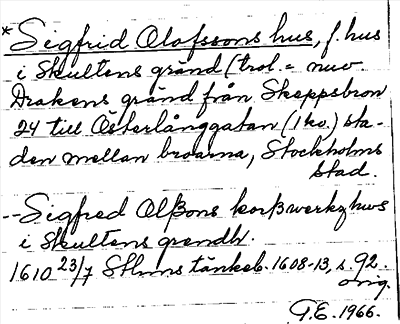 *Sigfrid Olofssons hus, f. hus
i Skultens gränd (trol. = nuv
Drakens gränd från Skeppsbron
24 till Österlånggatan (1 ko.) sta-
den mellan broarna, Stockholms
stad.
--Sigfred Olßons korßwerkz hws
i Skultens grendh.
1610 23/7 Sthms tänkeb. 1608-13, s. 92.
orig.
G.E. 1966.